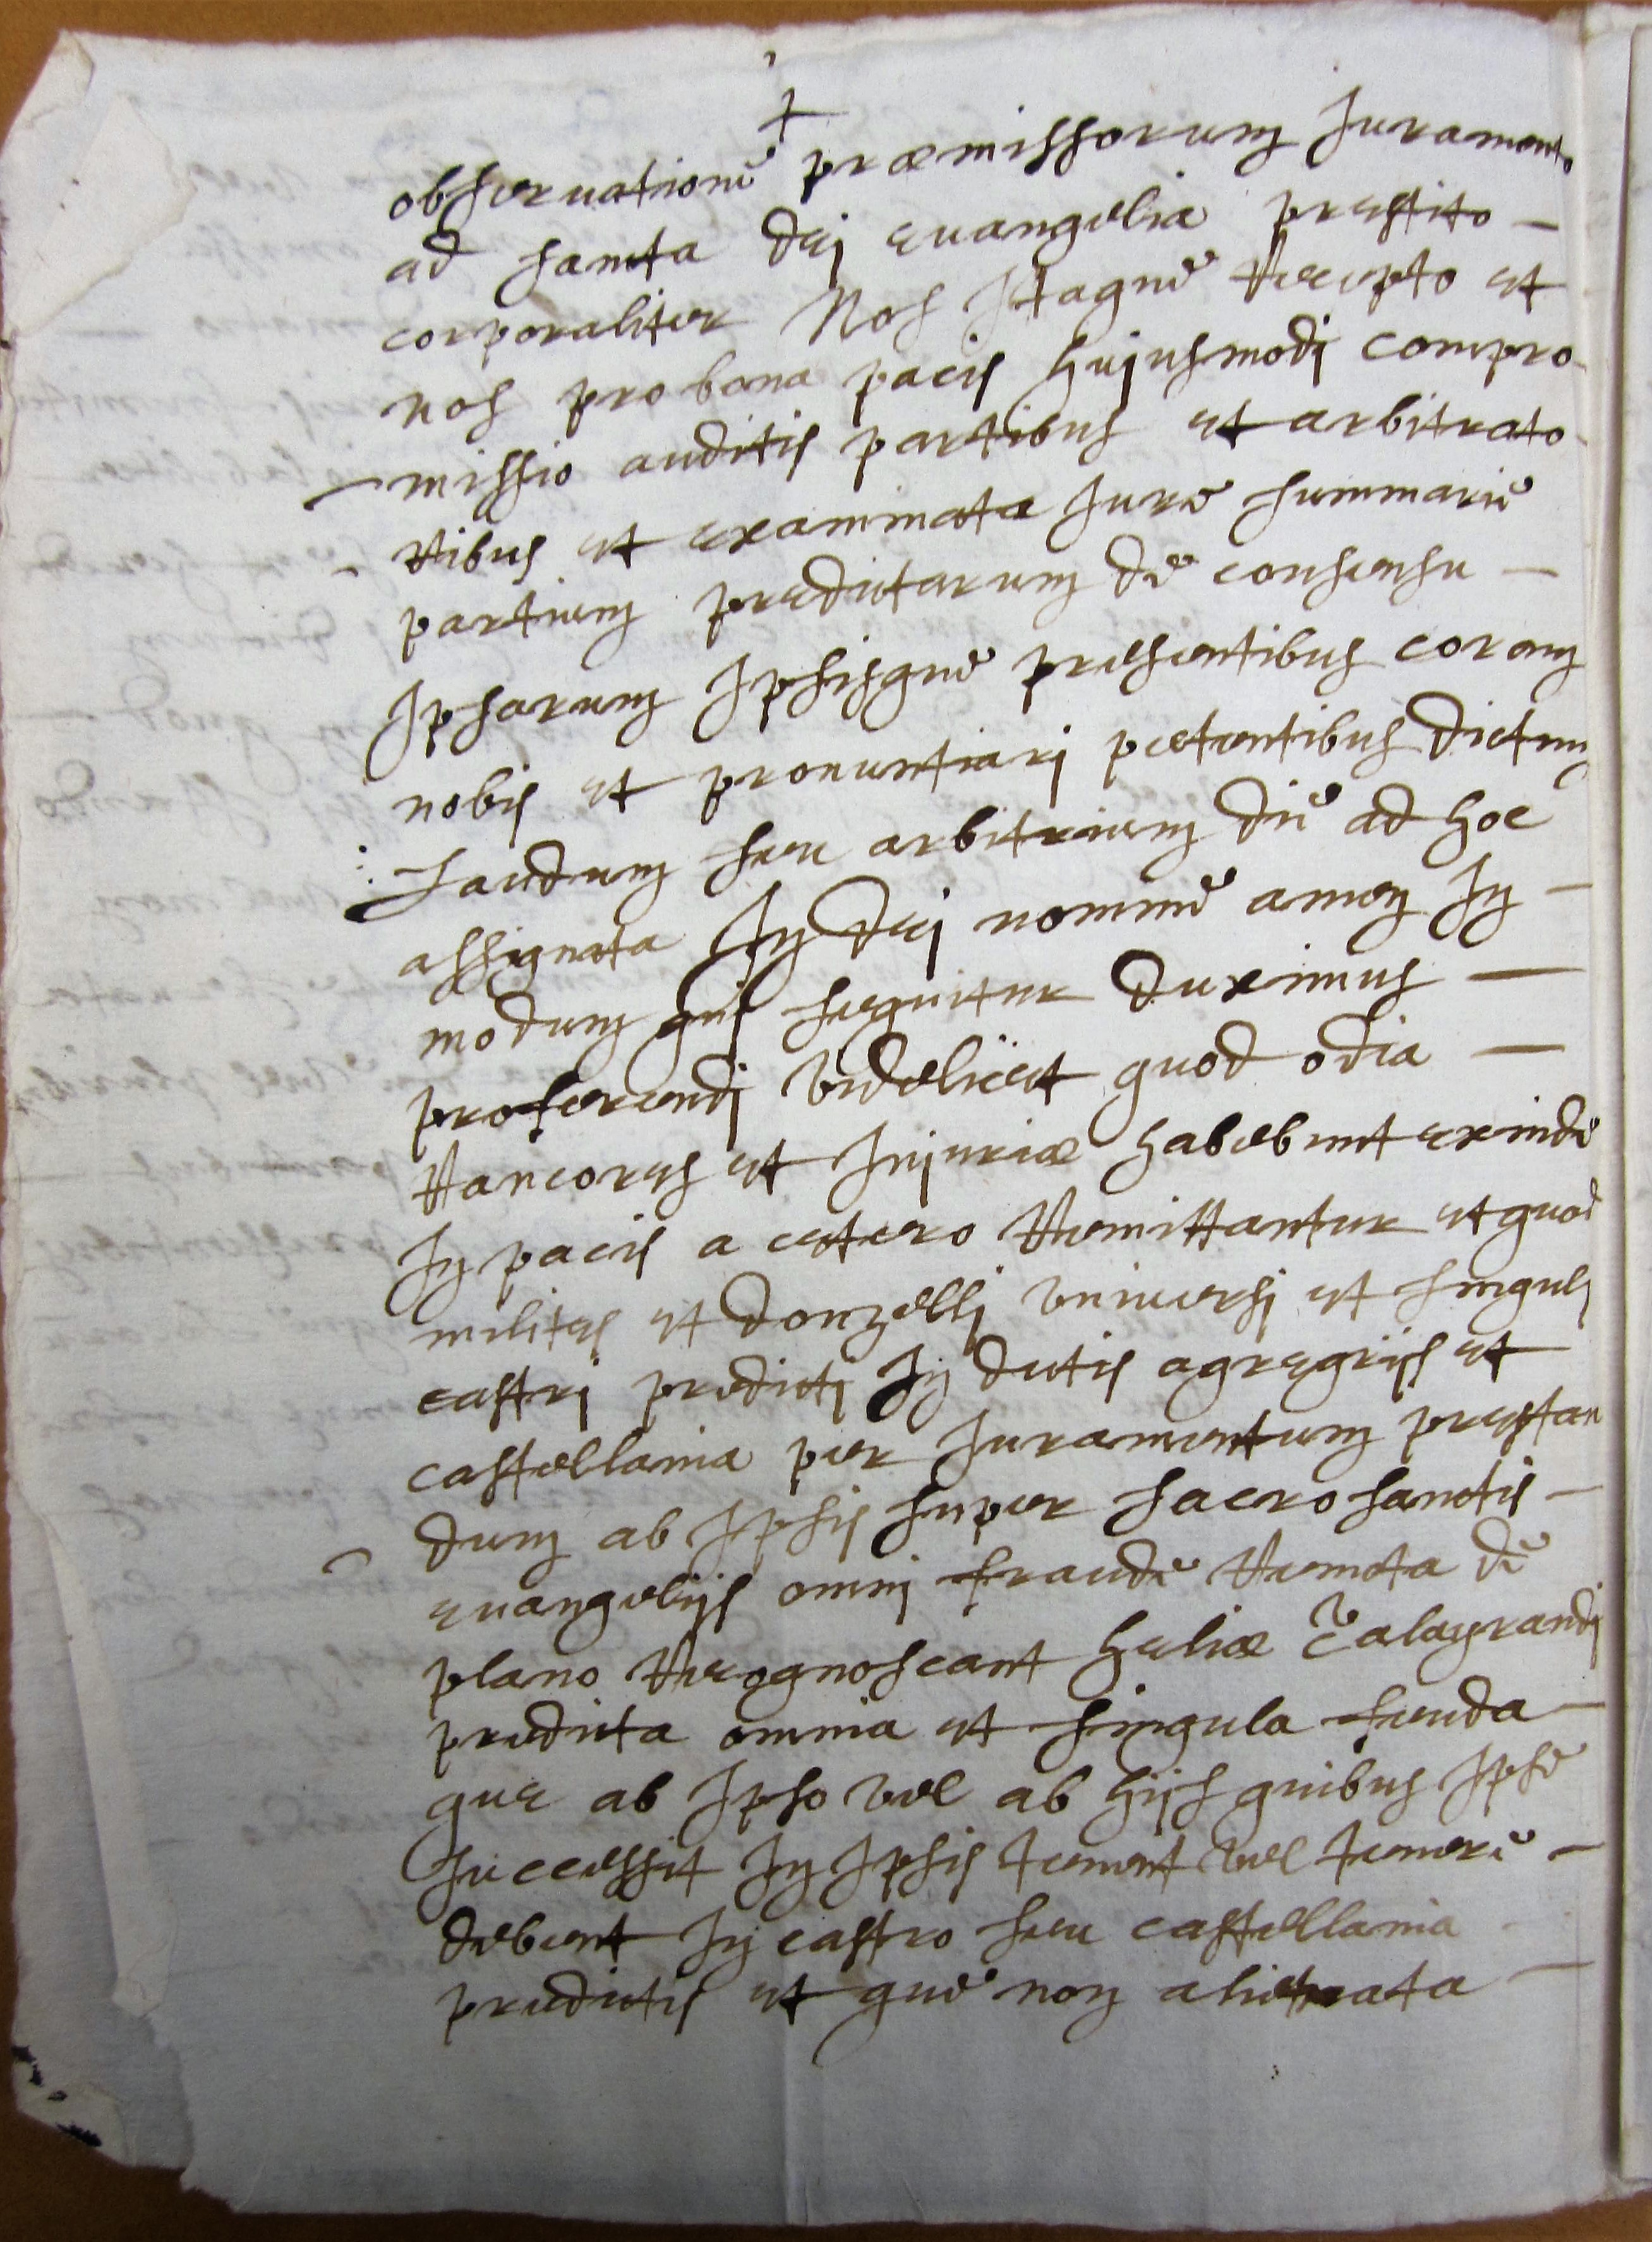 observatione præmissorum Juramento
ad sancta dej evangelia prestito –
corporaliter Nos Itaque Recepto et
nos pro bona pacis hujusmodj compro
– missio auditis partibus et arbitrato
– ribus et examinata Jure summarie
partium predictarum de consensu –
Ipsarum Ipsisque presentibus coram
nobis et pronuntiarj petentibus dictum
Laudum seu arbitrium die ad hoc
assignata In dej nomine amen In –
modum quis sequitur Duximus –
proferendj videlicet quod odia –
Rancores et Injuriæ habebunt exinde
In pacis a cetero Remittantur et quod
milites et donzellj universj et singulj
castrj predictj In dictis agregriis et
castellania per Juramentum prestan
dum ab Ipsis super sacrosanctis –
evangeliis omnj fraude Remota de
plano Recognoscant heliæ Talayrandj
predicta omnia et singula feuda –
que ab Ipso vel ab hiis quibus Ipse
successit In Ipsis tenent vel tenere –
debent In castro seu castellania
predictis et que non alienata –